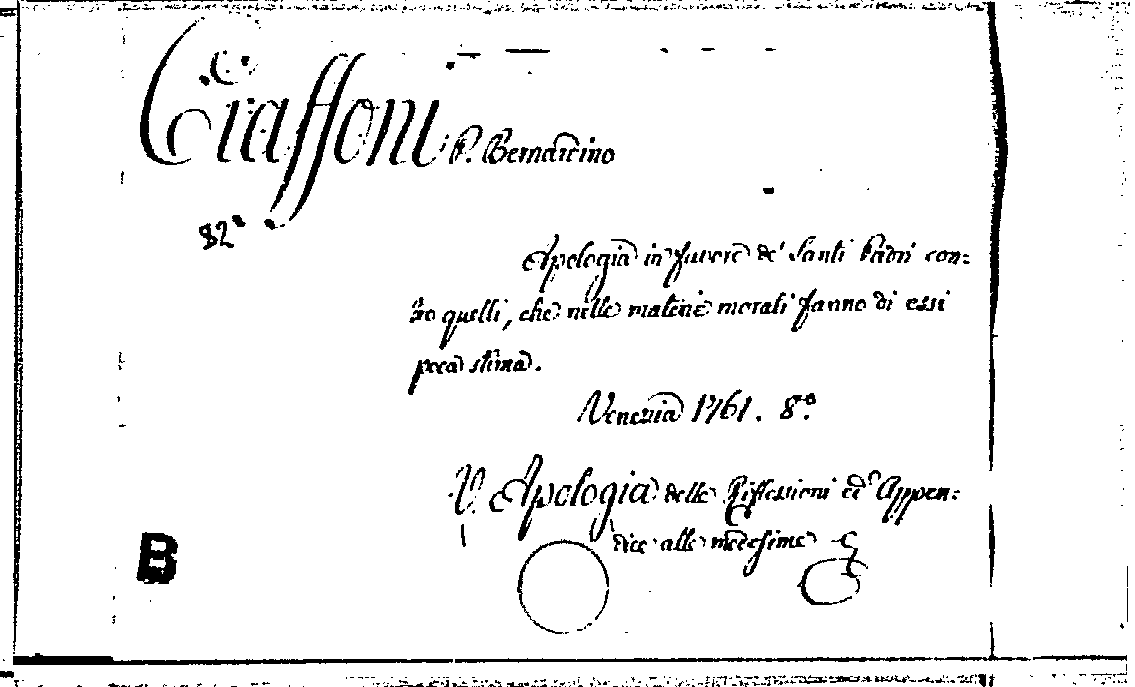 Ciaffoni P. Bernardino
82
Apologia in favore de' Santi Padri con:
tro quelli, che nelle materie morali fanno di essi
poca stima.
Venezia 1761. 8.º
V. Apologia delle Riflessioni ed Appen:
dice alle medesime
B